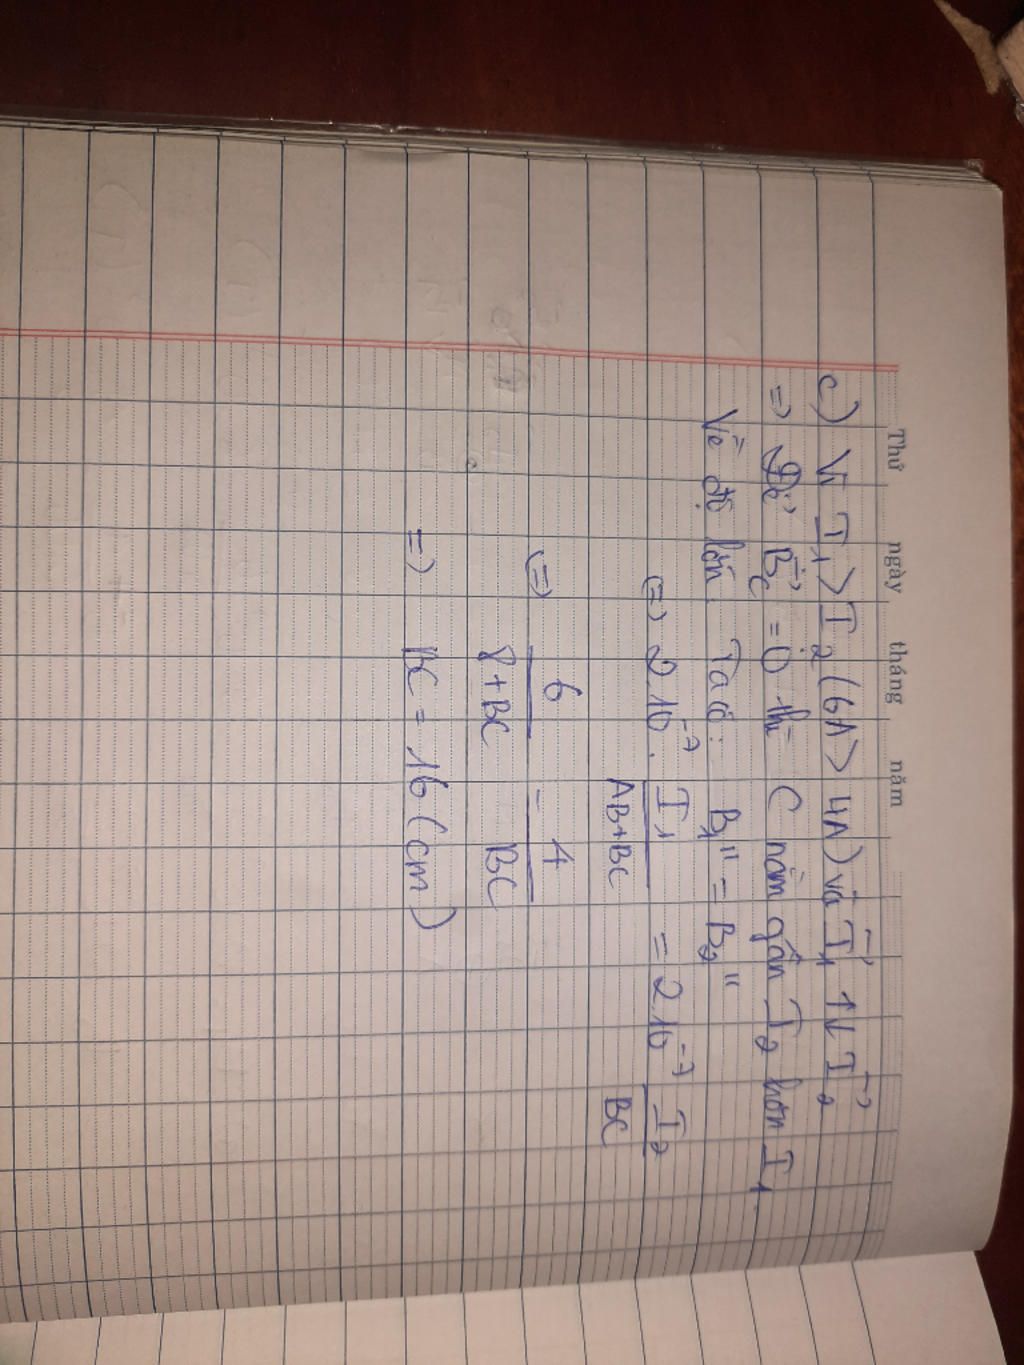 Thứ ngày tháng năm
c) Vì I₁ > I₂ (6A > 4A) và I₁⃗ ↑↓ I₂⃗
=> Để B⃗c = 0⃗ thì C nằm gần I₂ hơn I₁
Về độ lớn: Ta có: B₁'' = B₂''
(=) 2.10⁻⁷ . I₁/(AB+BC) = 2.10⁻⁷ I₂/BC
(=) 6/(8+BC) = 4/BC
=) BC = 16 (cm)